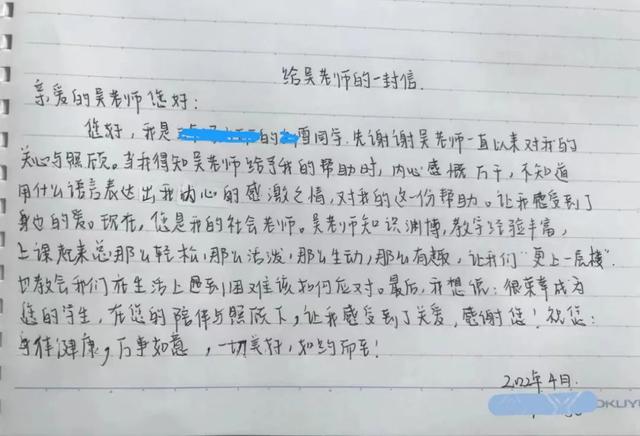 给吴老师的一封信.
亲爱的吴老师您好:
您好,我是 的 雪同学.先谢谢吴老师一直以来对我的
关心与照顾。当我得知吴老师给予我的帮助时,内心感慨万千,不知道
用什么语言表达出我内心的感激之情,对我的这一份帮助。让我感受到了
身边的爱。现在,您是我的社会老师。吴老师知识渊博,教学经验丰富,
上课起来总那么轻松,那么活泼,那么生动,那么有趣,让我们“更上一层楼”.
也教会我们在生活上遇到困难该如何应对。最后,我想说:很荣幸成为
您的学生,在您的陪伴与照顾下,让我感受到了关爱,感谢您!祝您:
身体健康,万事如意,一切美好,如约而至!
2022年4月.
OKUYO